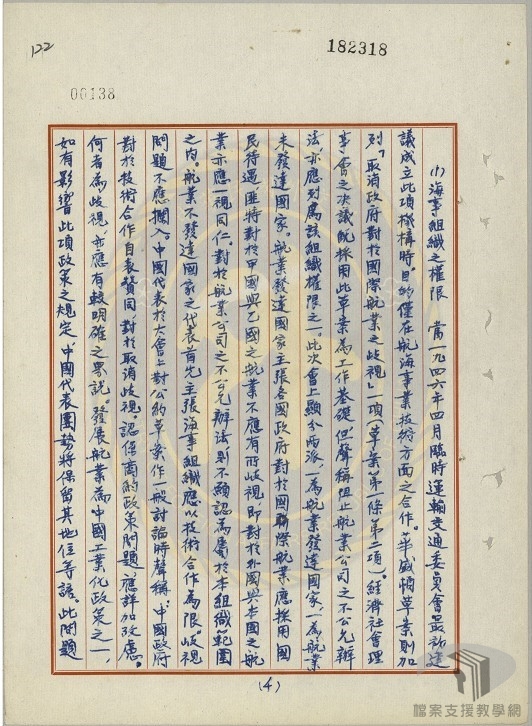 122
182318
00138
(1)海事組織之權限　當一九四六年四月臨時運輸交通委員會最初建
議成立此項機構時，目的僅在航海事業技術方面之合作。華盛頓草案則加
列「取消政府對於國際航業之歧視」一項（草案第一條第二項）。經濟社會理
事會之決議既採用此草案為工作基礎，但聲稱阻止航業公司之不公允辦
法，亦應列為該組織權限之一。此次會上顯分兩派，一為航業發達國家，一為航業
未發達國家。航業發達國家主張各國政府對於國際航業應採用國
民待遇，匪特對於甲國與乙國之航業不應有所歧視，即對於外國與本國之航
業亦應一視同仁。對於航業公司之不公允辦法則不願認為屬於本組織範圍
之內。航業不發達國家之代表首先主張海事組織應以技術合作為限。歧視
問題不應攔入。中國代表於大會上對公約草案作一般討論時聲稱：中國政府
對於技術合作自表贊同，對於取消歧視，認係商約政策問題，應詳加考慮。
何者為歧視，亦應有較明確之界說。發展航業為中國工業化政策之一，
如有影響此項政策之規定，中國代表團勢將保留其地位等語。此問題
(4)
檔案支援教學網